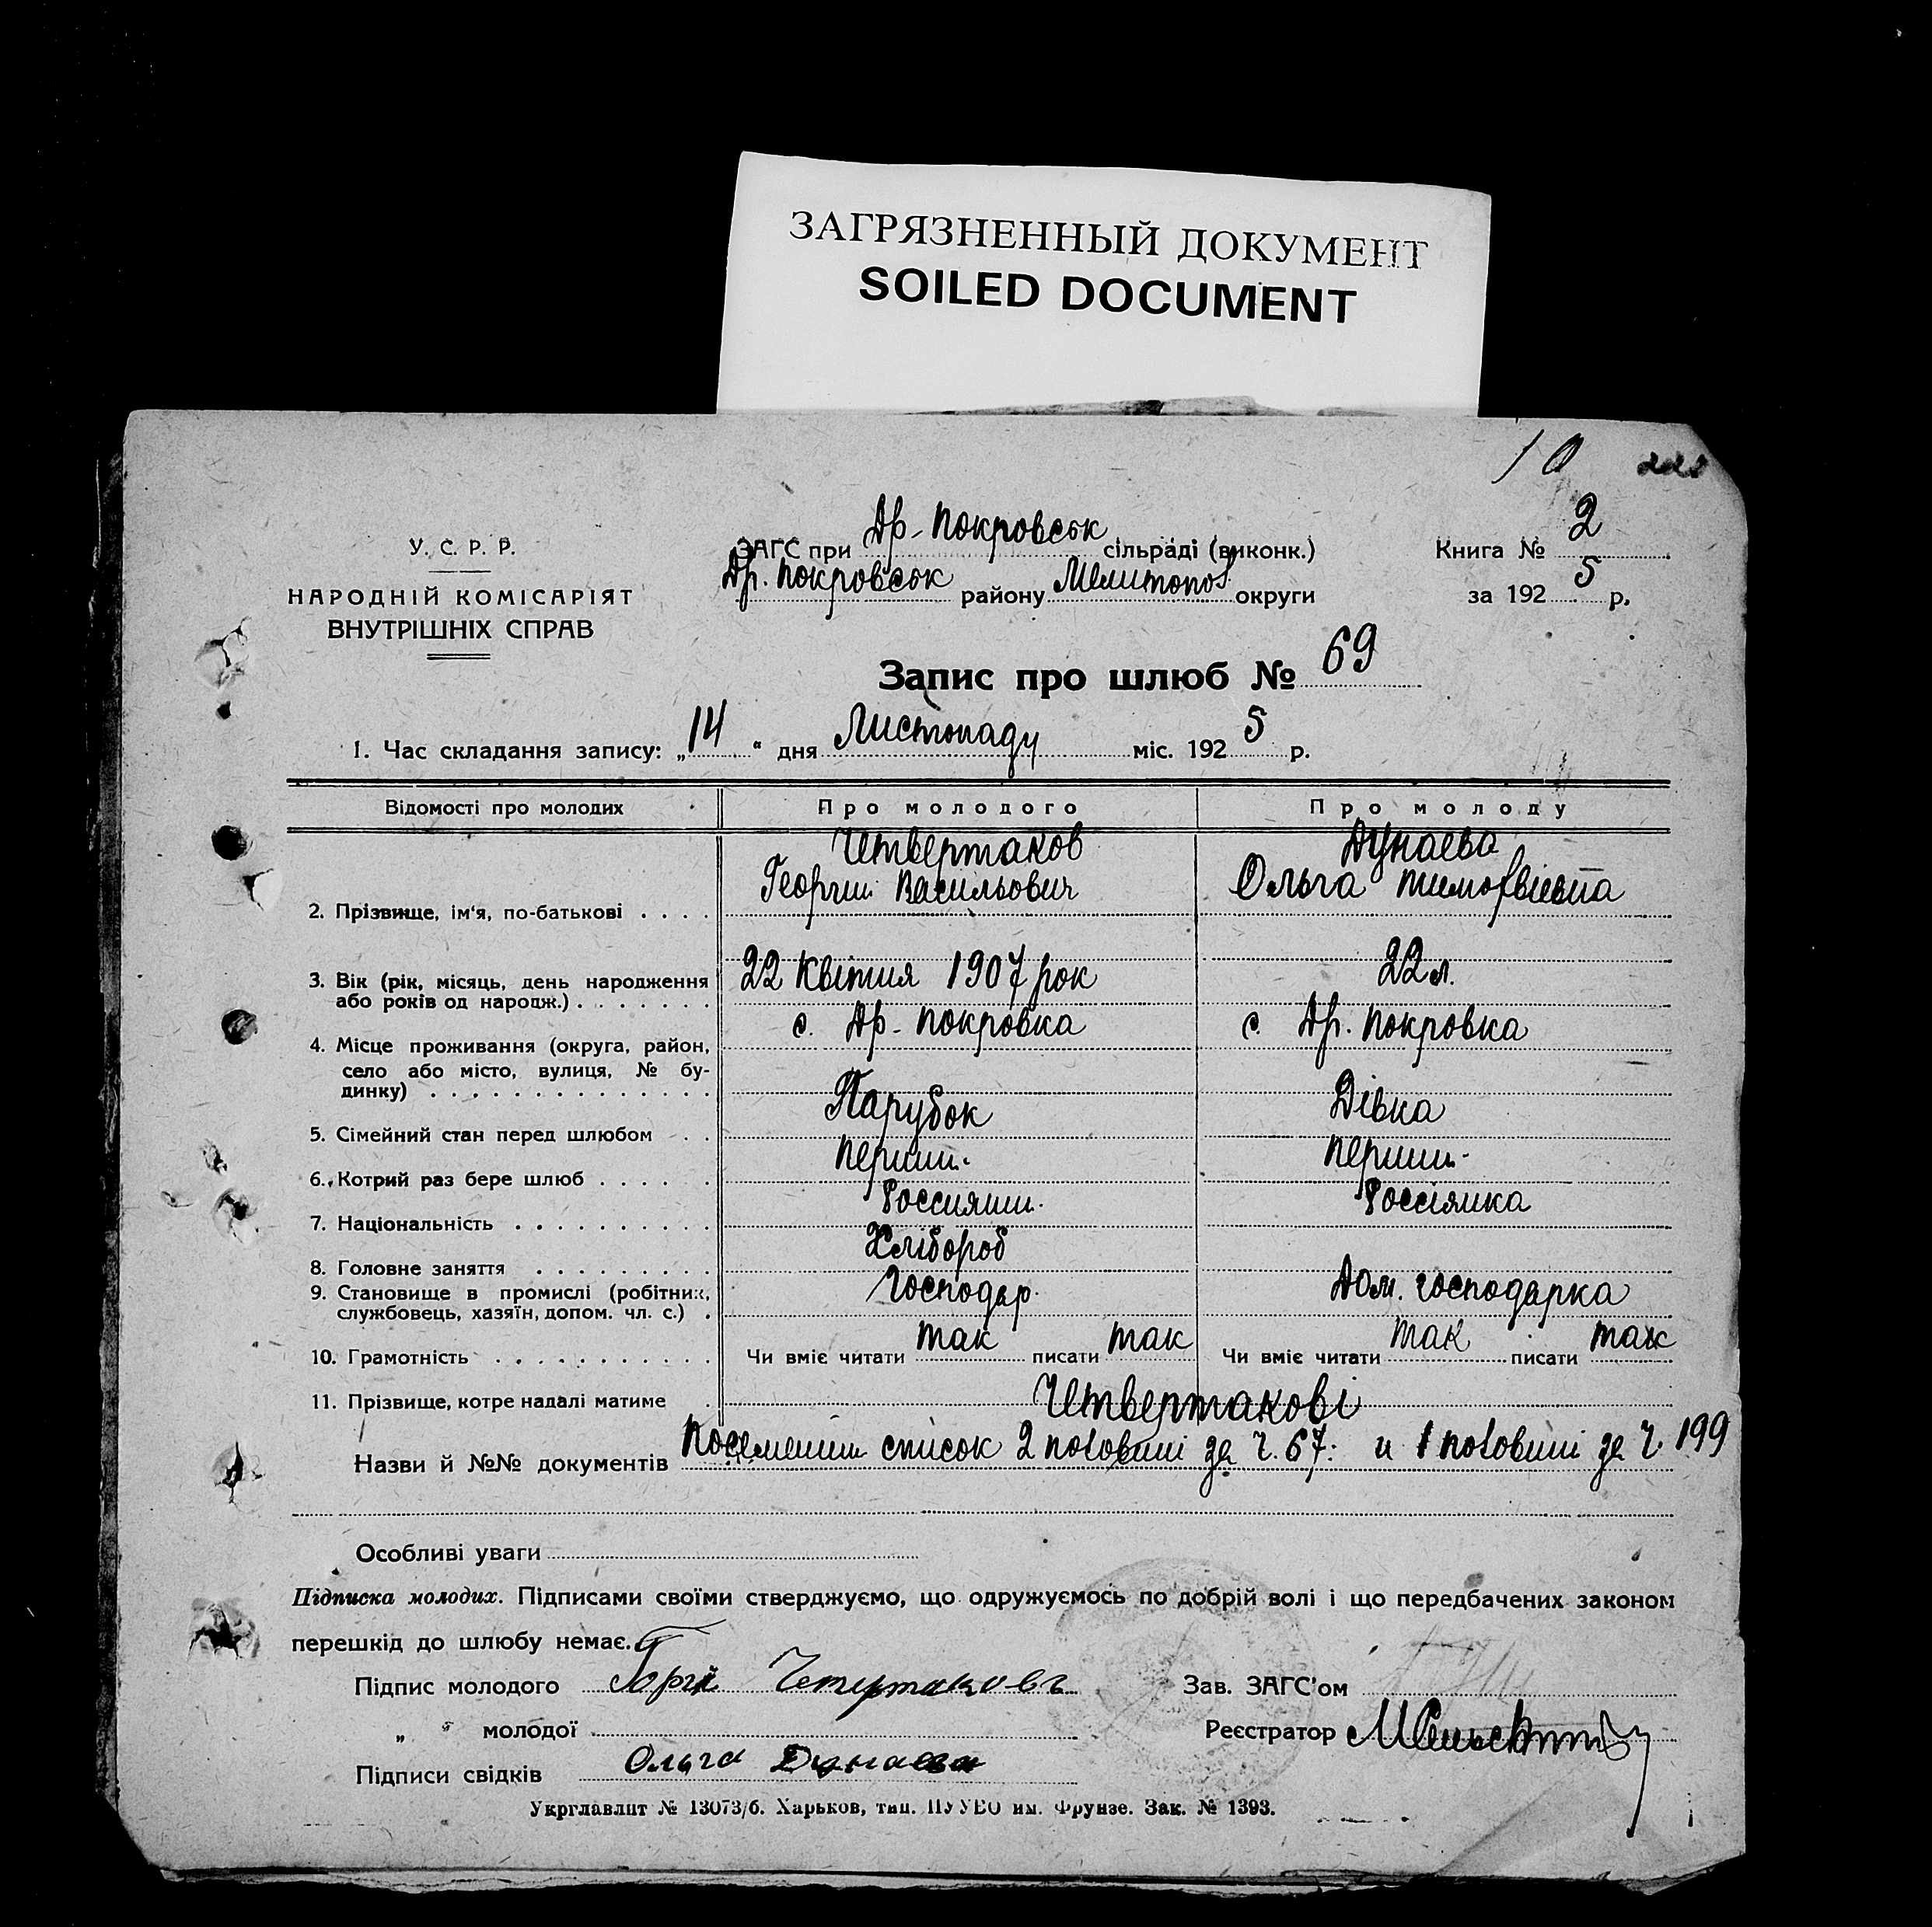 ЗАГРЯЗНЕННЫЙ ДОКУМЕНТ
SOILED DOCUMENT
10
У. С. Р. Р.
НАРОДНІЙ КОМІСАРІЯТ
ВНУТРІШНІХ СПРАВ
ЗАГС при Др-Покровськ сільраді (виконк.)
Др. Покровськ району Мелитопол округи
Книга № 2
за 1925 р.
Запис про шлюб № 69
1. Час складання запису: „14“ дня Листопаду міс. 1925 р.
Відомості про молодих Про молодого Про молоду
Четвертаков Дунаева
2. Прізвище, ім'я, по-батькові . . . . Георгий Васильович Ольга Тимофвієвна
3. Вік (рік, місяць, день народження 22 Квітня 1907 рок 22 л.
або років од народж.) . . . . . . .
4. Місце проживання (округа, район, с. Др-Покровка с. Др. Покровка
село або місто, вулиця, № бу-
динку) . . . . . . . . . . . . . .
5. Сімейний стан перед шлюбом . . Парубок Дівка
6. Котрий раз бере шлюб . . . . . Перший. Перший.
7. Національність . . . . . . . . . Россиянин. Россіянка
8. Головне заняття . . . . . . . . Хлібороб
9. Становище в промислі (робітник, Господар. Дом. господарка
службовець, хазяїн, допом. чл. с.) .
10. Грамотність . . . . . . . . . . Чи вміє читати так писати так Чи вміє читати так писати так
11. Прізвище, котре надалі матиме . Четвертакові
Назви й №№ документів список 2 половині за ч. 67. и 1 половині за ч. 199
Особливі уваги
Підписка молодих. Підписами своїми стверджуємо, що одружуємось по добрій волі і що передбачених законом
перешкід до шлюбу немає.
Підпис молодого Горгй Четвертаковъ Зав. ЗАГС'ом
„ “ молодої Реєстратор
Підписи свідків Ольга Дунаева
Укрглавлит № 13073/б. Харьков, тип. ПУУВО им. Фрунзе. Зак. № 1393.